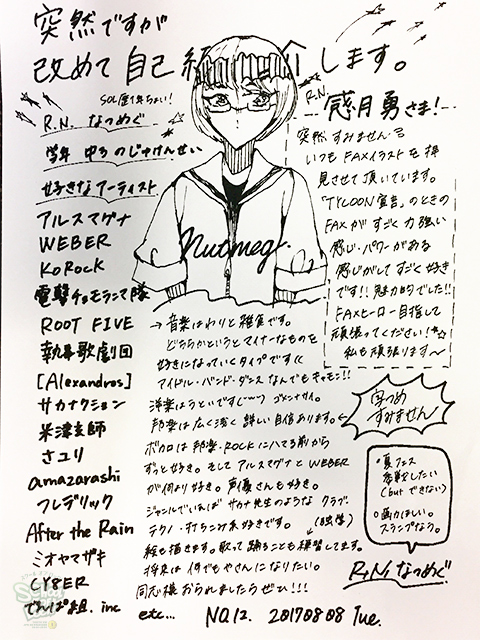 突然ですが
改めて自己紹介します。
SOL歴1年ちょい!
R.N. なつめぐ
学年 中3のじゅけんせい
好きなアーティスト
アルスマグナ
WEBER
KoRocK
電撃チョモランマ隊
ROOT FIVE
執事歌劇団
[Alexandros]
サカナクション
米津玄師
さユり
amazarashi
フレデリック
After the Rain
ミオヤマザキ
CYBER
でんぱ組.inc
Nutmeg.
R.N. 惑月勇さま!
突然すみません
いつもFAXイラストを拝
見させて頂いています。
「TYCOON宣告」のときの
FAXがすごく力強い
感じ・パワーがある
感じがしてすごく好き
です!! 魅力的でした!!
FAXヒーロー目指して
頑張ってください!
私も頑張ります〜
→ 音楽はわりと雑食です。
どちらかというとマイナーなものを
好きになっていくタイプです((
アイドル・バンド・ダンスなんでもキッモン!!
洋楽はうといです ゴメンナサイ。
邦楽は広く浅く詳しい自信あります。←
ボカロは邦楽・ROCKにハマる前から
ずっと好き。そしてアルスマグナとWEBER
が何より好き。声優さんも好き。
ジャンルでいえばサカナ先生のようなクラブ・
テクノ・打ちこみ系好きです。
(独学)
絵も描きます。歌って踊ることも練習してます。
将来は何でもやさんになりたい。
同志様おられましたらぜひ!!!
etc... NO.12. 2017.08.08 Tue.
字つめ
すみません
・夏フェス
参戦したい
(but できない)
・画力ほしい。
スランプなう。
R.N. なつめぐ